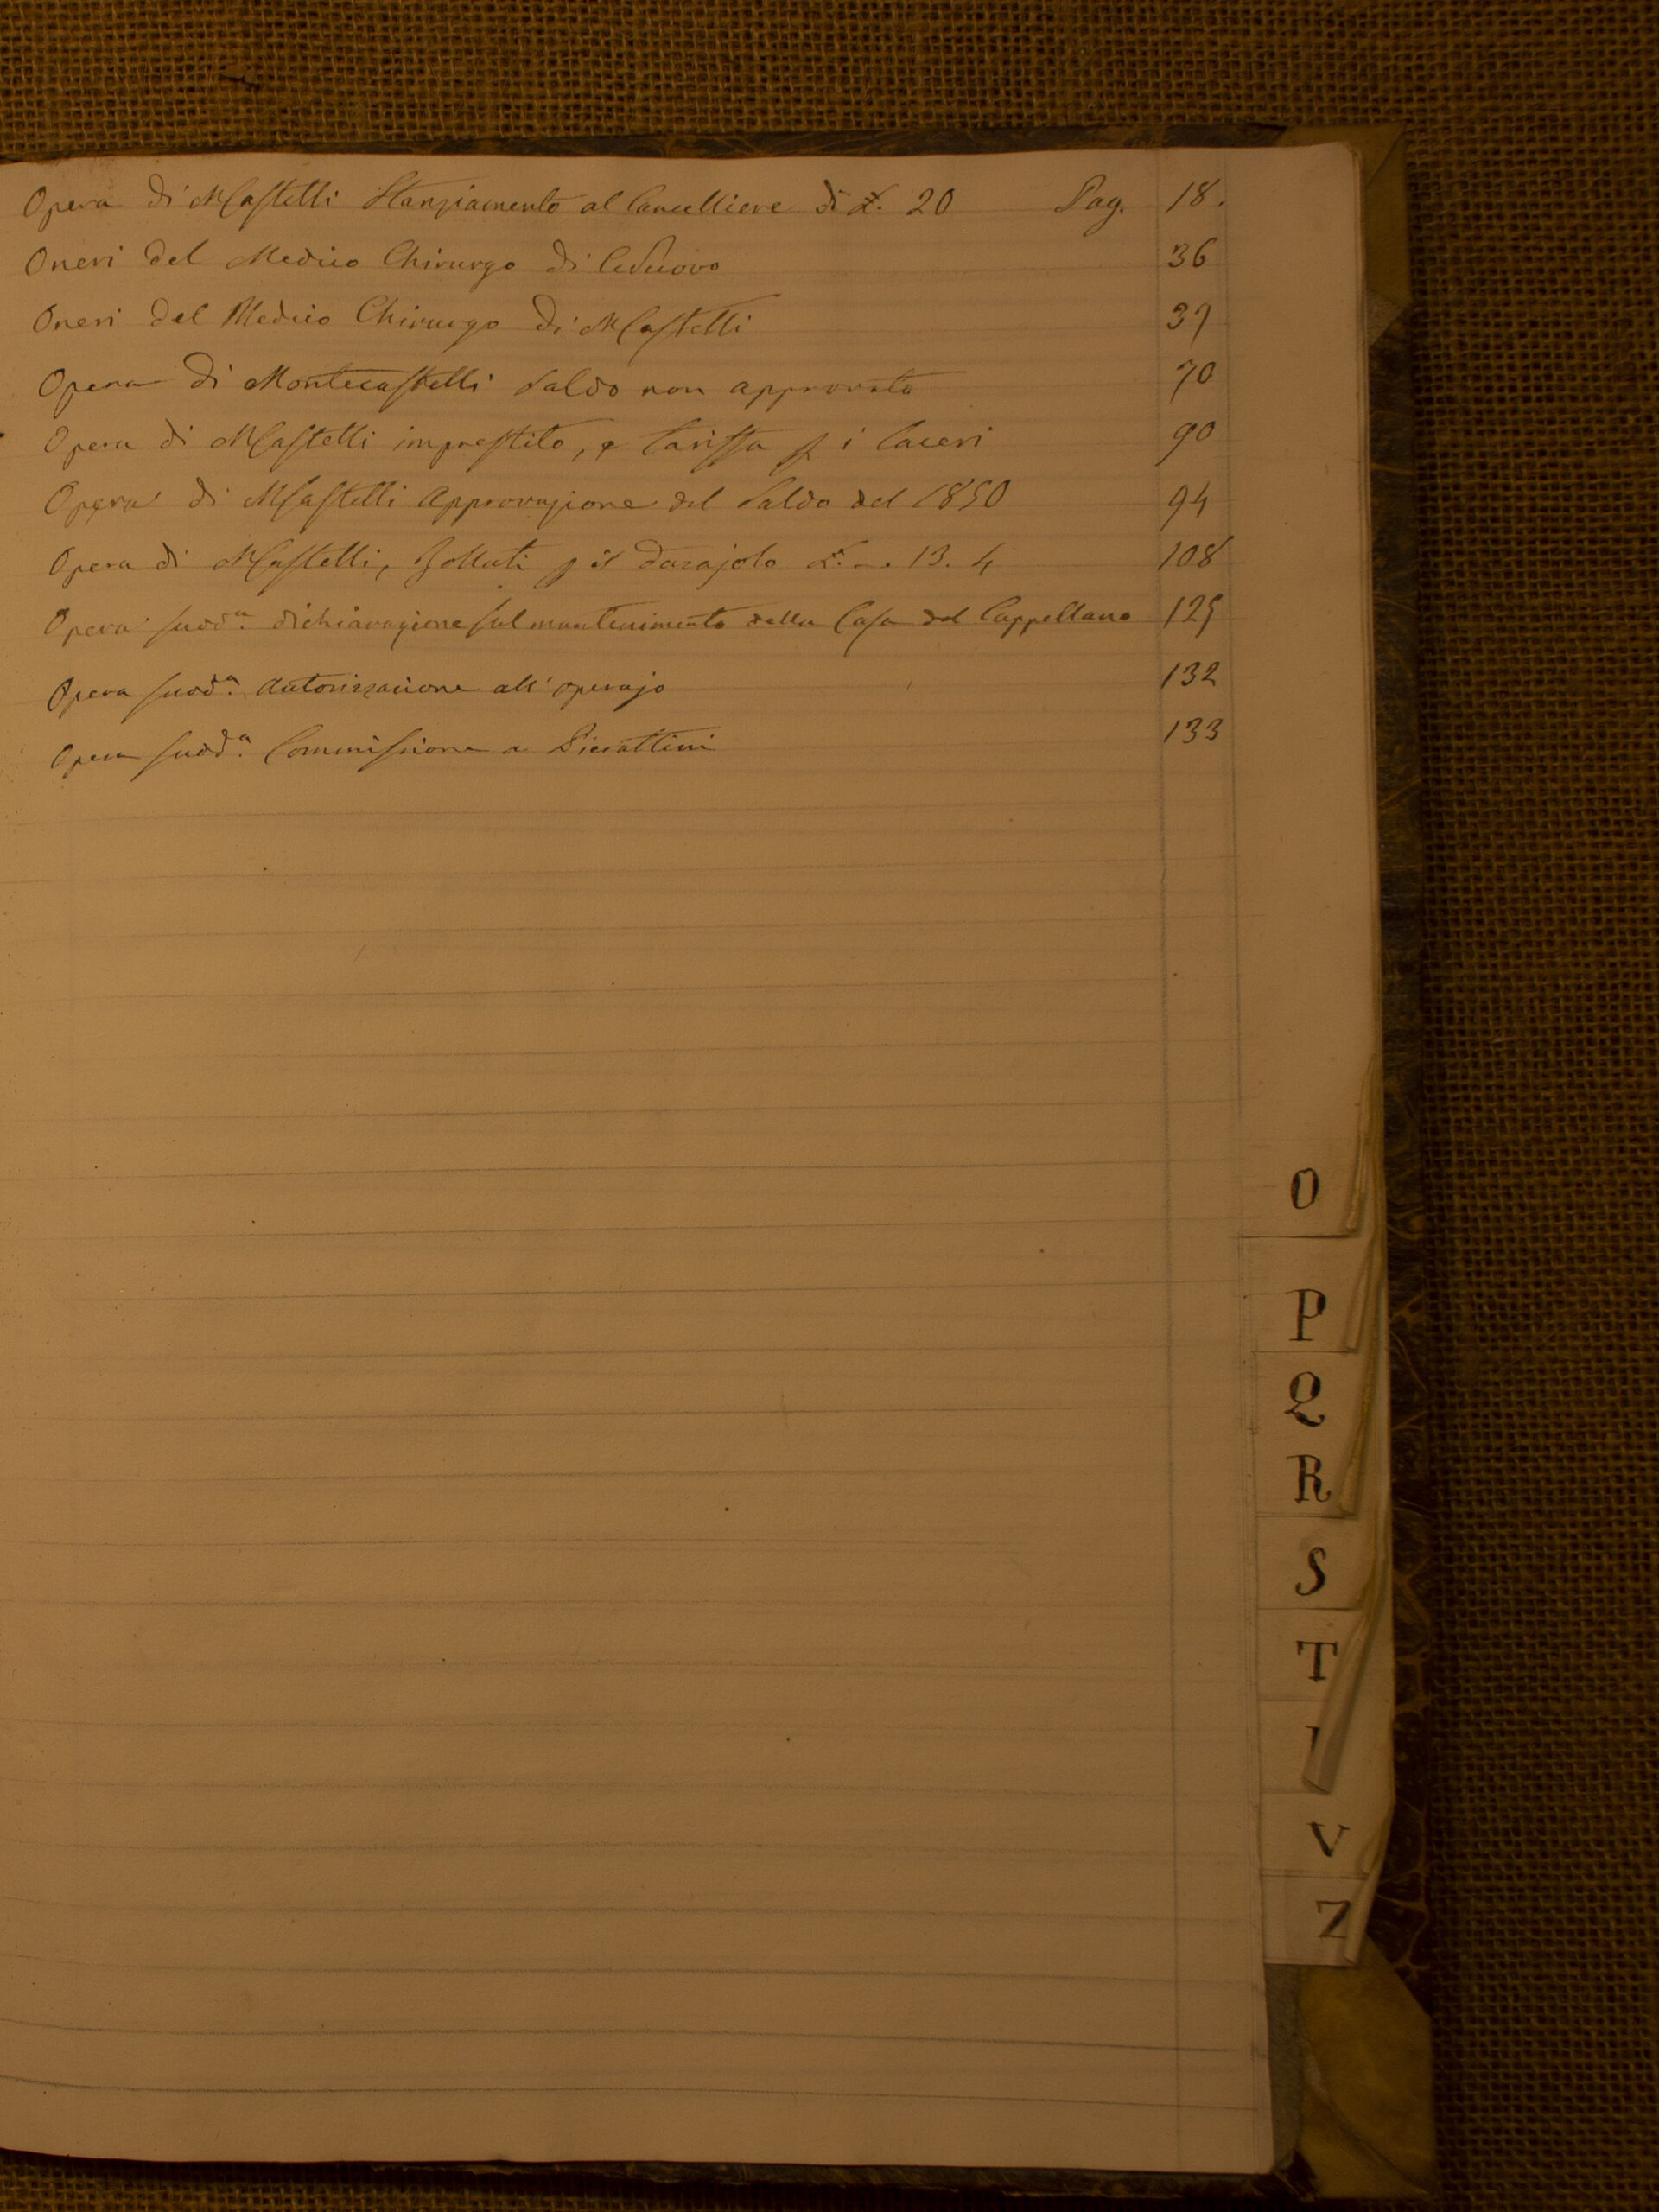 Opera di MCastelli Stanziamento al Cancelliere di £. 20 Pag. 18.
Oneri del Medico Chirurgo di CNuovo 36
Oneri del Medico Chirurgo di MCastelli 37
Opera di Montecastelli Saldo non approvato 70
Opera di MCastelli imprestito, e tariffa p i Ceri 90
Opera di MCastelli Approvazione del Saldo del 1850 94
Opera di MCastelli, Bollati p il Dazajolo £. 13. 4 108
Opera sudd.a dichiarazione sul mantenimento della Casa del Cappellano 125
Opera sudd.a Autorizzazione all'operajo 132
Opera sudd.a Commissione a Pierattini 133
O
P
Q
R
S
T
V
Z